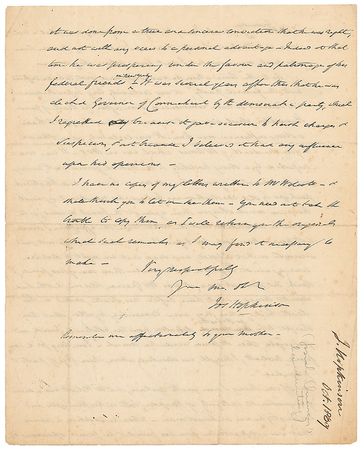 it was done from a true and sincere conviction that he was right,
and not with any view to a personal advantage – Indeed at that
time he was prospering under the favour and patronage of his
federal friends in New York – It was several years after this that he was
elected Governor of Connecticut by the democratic party, which
I regretted only because it gave occasion to harsh charges &
suspicions, & not because I believed it had any influence
upon his opinions –
I have no copies of my letters written to Mr Wolcott – &
shall thank you to let me see them – You need not take the
trouble to copy them, as I will return you the originals
with such remarks as I may find it necessary to
make –
Very respectfully
Your mo. obt
Jos Hopkinson
Remember me affectionately to your Mother –
J. Hopkinson
Oct.